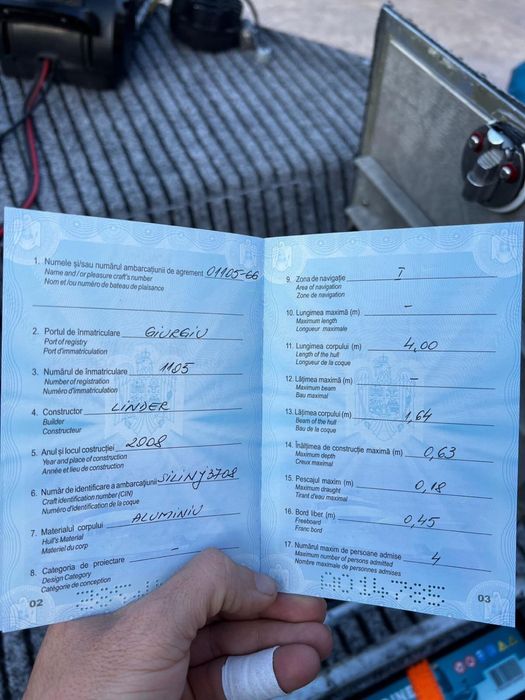 1. Numele și/sau numărul ambarcațiunii de agrement 01105-66
Name and / or pleasure craft's number
Nom et /ou numéro de bateau de plaisance
2. Portul de înmatriculare GIURGIU
Port of registry
Port d'immatriculation
3. Numărul de înmatriculare 1105
Number of registration
Numéro d'immatriculation
4. Constructor LINDER
Builder
Constructeur
5. Anul și locul costrucției 2008
Year and place of construction
Année et lieu de construction
6. Număr de identificare a ambarcațiunii
Craft identification number (CIN)
Numéro d'identification de la coque
7. Materialul corpului ALUMINIU
Hull's Material
Materiel du corp
8. Categoria de proiectare -
Design Category
Catégorie de conception
02
9. Zona de navigație I
Area of navigation
Zone de navigation
10. Lungimea maximă (m) -
Maximum length
Longueur maximale
11. Lungimea corpului (m) 4,00
Length of the hull
Longueur de la coque
12. Lățimea maximă (m) -
Maximum beam
Bau maximal
13. Lățimea corpului (m) 1,64
Beam of the hull
Bau de la coque
14. Înălțimea de construcție maximă (m) 0,63
Maximum depth
Creux maximal
15. Pescajul maxim (m) 0,18
Maximum draught
Tirant d'eau maximal
16. Bord liber (m) 0,45
Freeboard
Franc bord
17. Numărul maxim de persoane admise 4
Maximum number of persons admitted
Nombre maximale de personnes admises
03